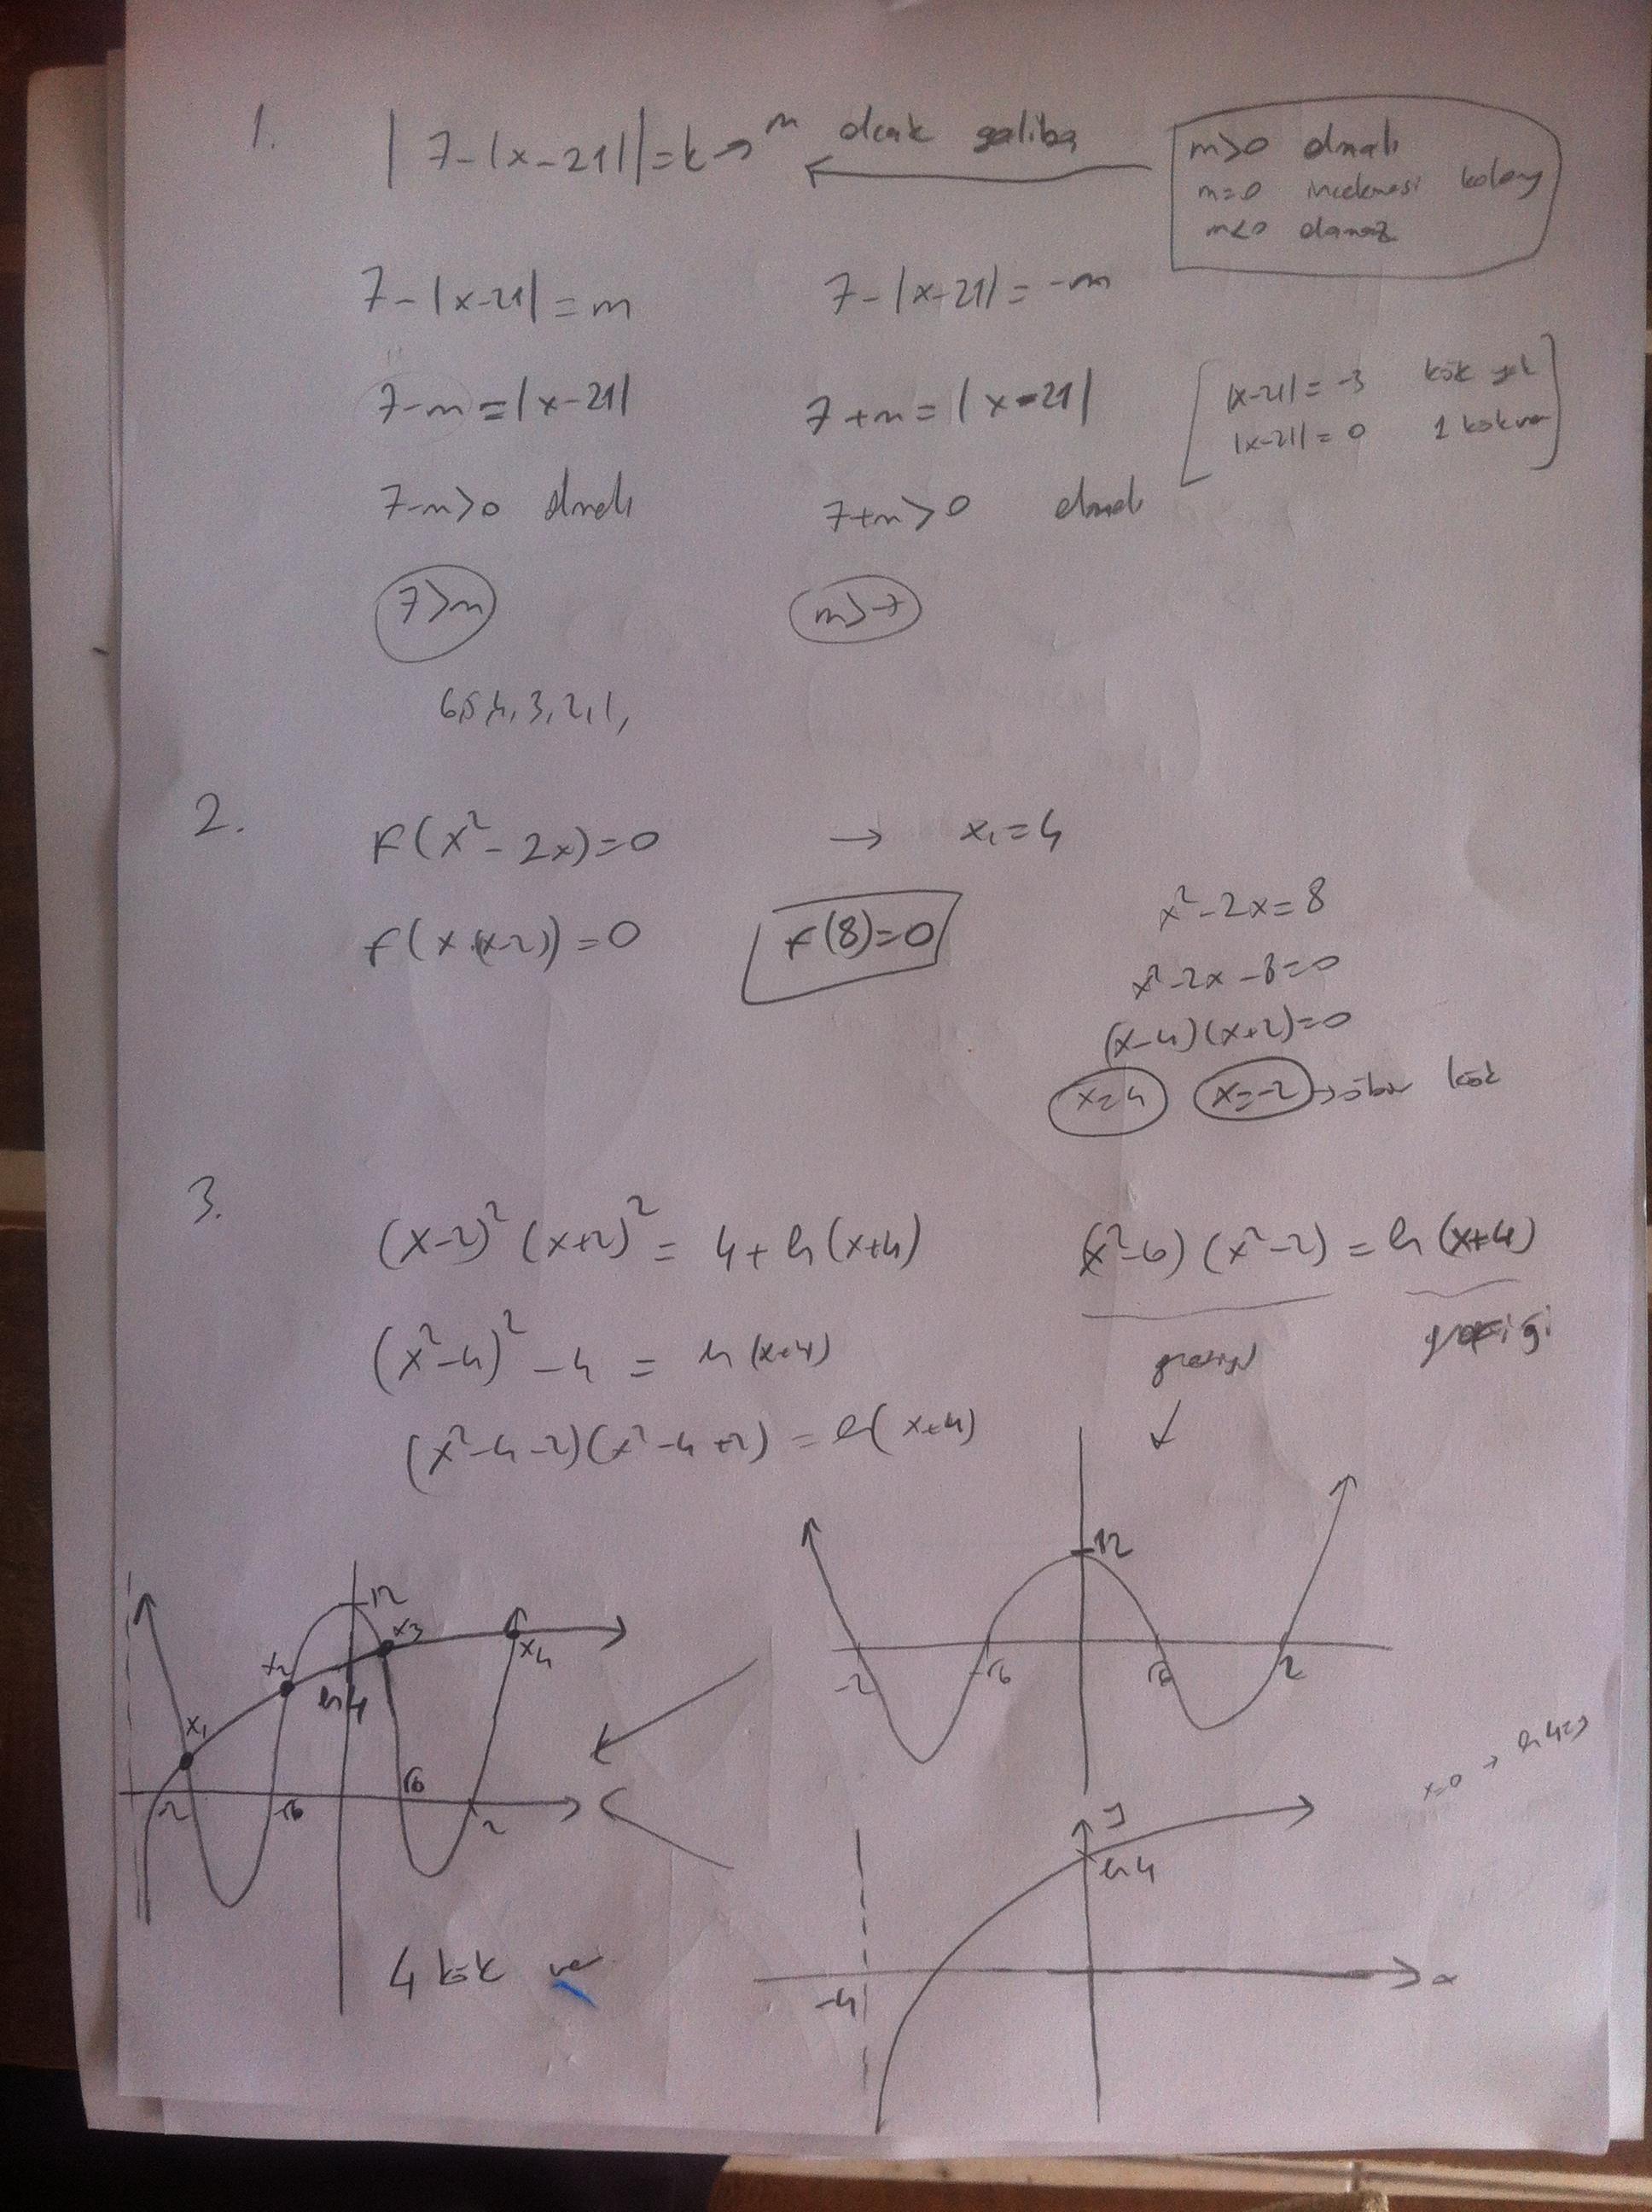 1. |7-|x-21||=k → m olcak galiba
m>0 olmalı
m=0 incelemesi kolay
m<0 olamaz
7-|x-21|=m 7-|x-21|=-m
7-m=|x-21| 7+m=|x-21|
|x-21|=-3 kök yok
|x-21|=0 1 kök var
7-m>0 olmalı 7+m>0 olmalı
7>m m>-7
6,5,4,3,2,1,
2. F(x²-2x)=0 → x₁=4
f(x(x-2))=0 F(8)=0
x²-2x=8
x²-2x-8=0
(x-4)(x+2)=0
x=4 x=-2 → öbür kök
3. (x-2)²(x+2)² = 4+ln(x+4) (x²-6)(x²-2) = ln(x+4)
(x²-4)²-4 = ln(x+4) grafiği grafiği
(x²-4-2)(x²-4+2) = ln(x+4)
12
-2 -√6 √6 2
12
x₁ x₂ x₃ x₄
ln4
-2 -√6 √6 2
x=0 →
y
ln4
-4 x
4 kök var